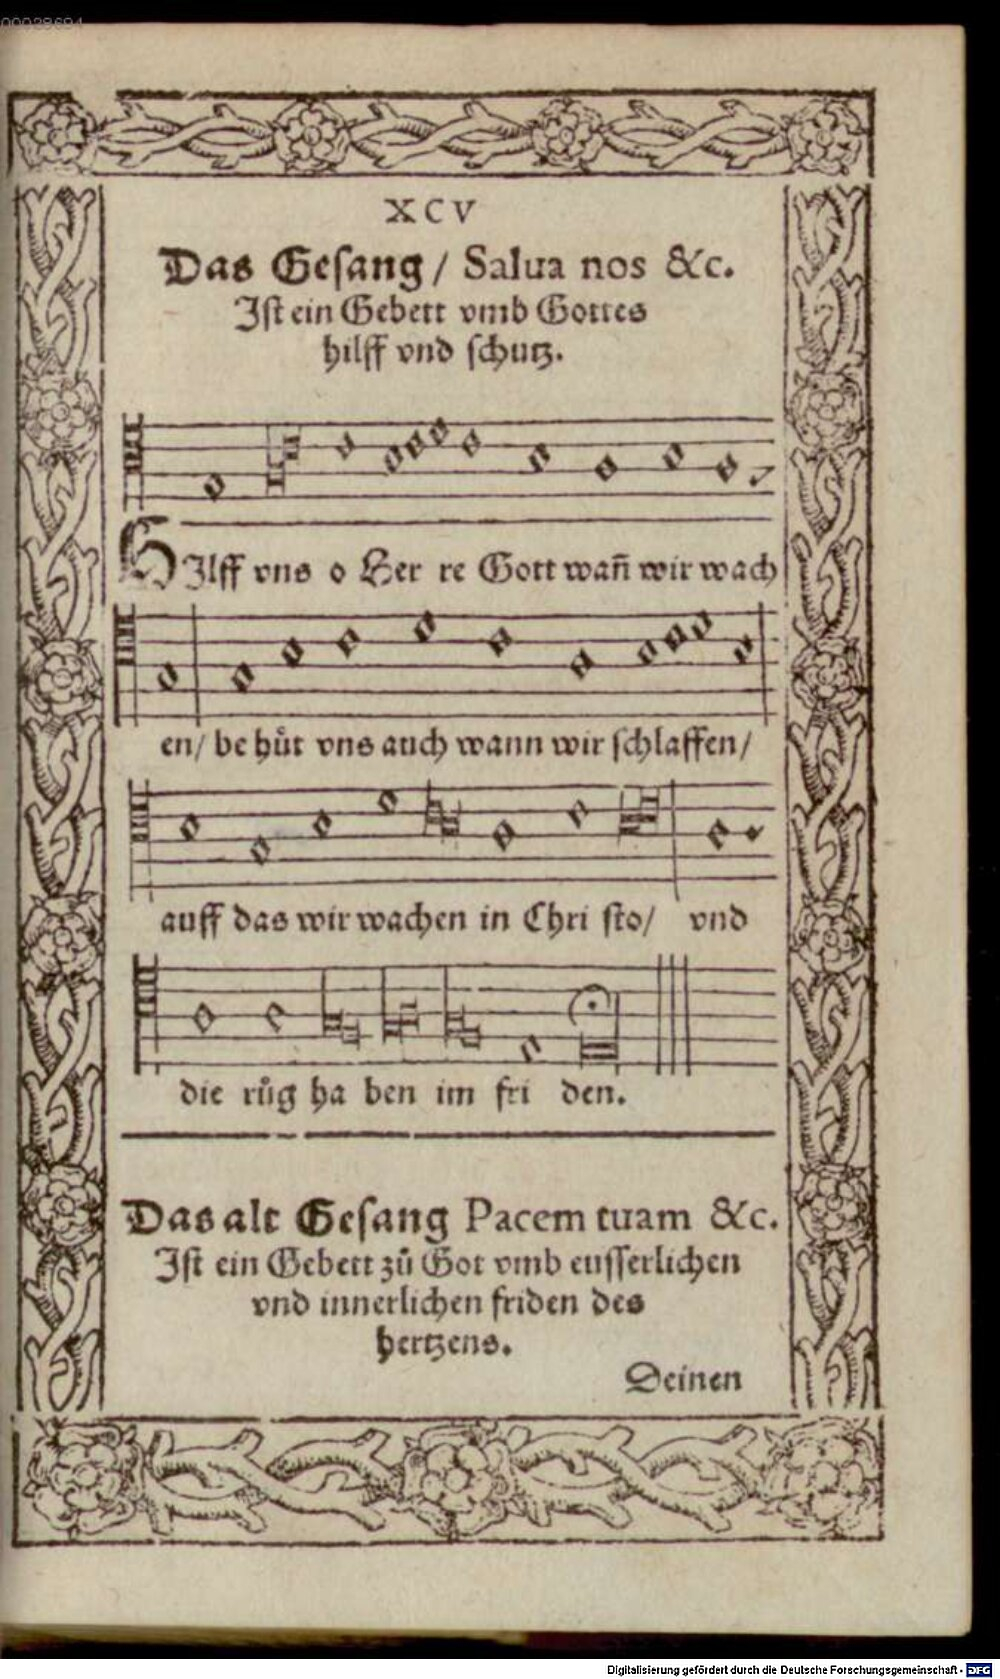 00028694
XCV
Das Gesang / Salua nos &c.
Ist ein Gebett vmb Gottes
hilff vnd schutz.
HIlff vns o Her re Gott wañ wir wach
en / be hůt vns auch wann wir schlaffen /
auff das wir wachen in Chri sto / vnd
die růg ha ben im fri den.
Das alt Gesang Pacem tuam &c.
Ist ein Gebett zů Got vmb eusserlichen
vnd innerlichen friden des
hertzens.
Deinen
Digitalisierung gefördert durch die Deutsche Forschungsgemeinschaft - DFG